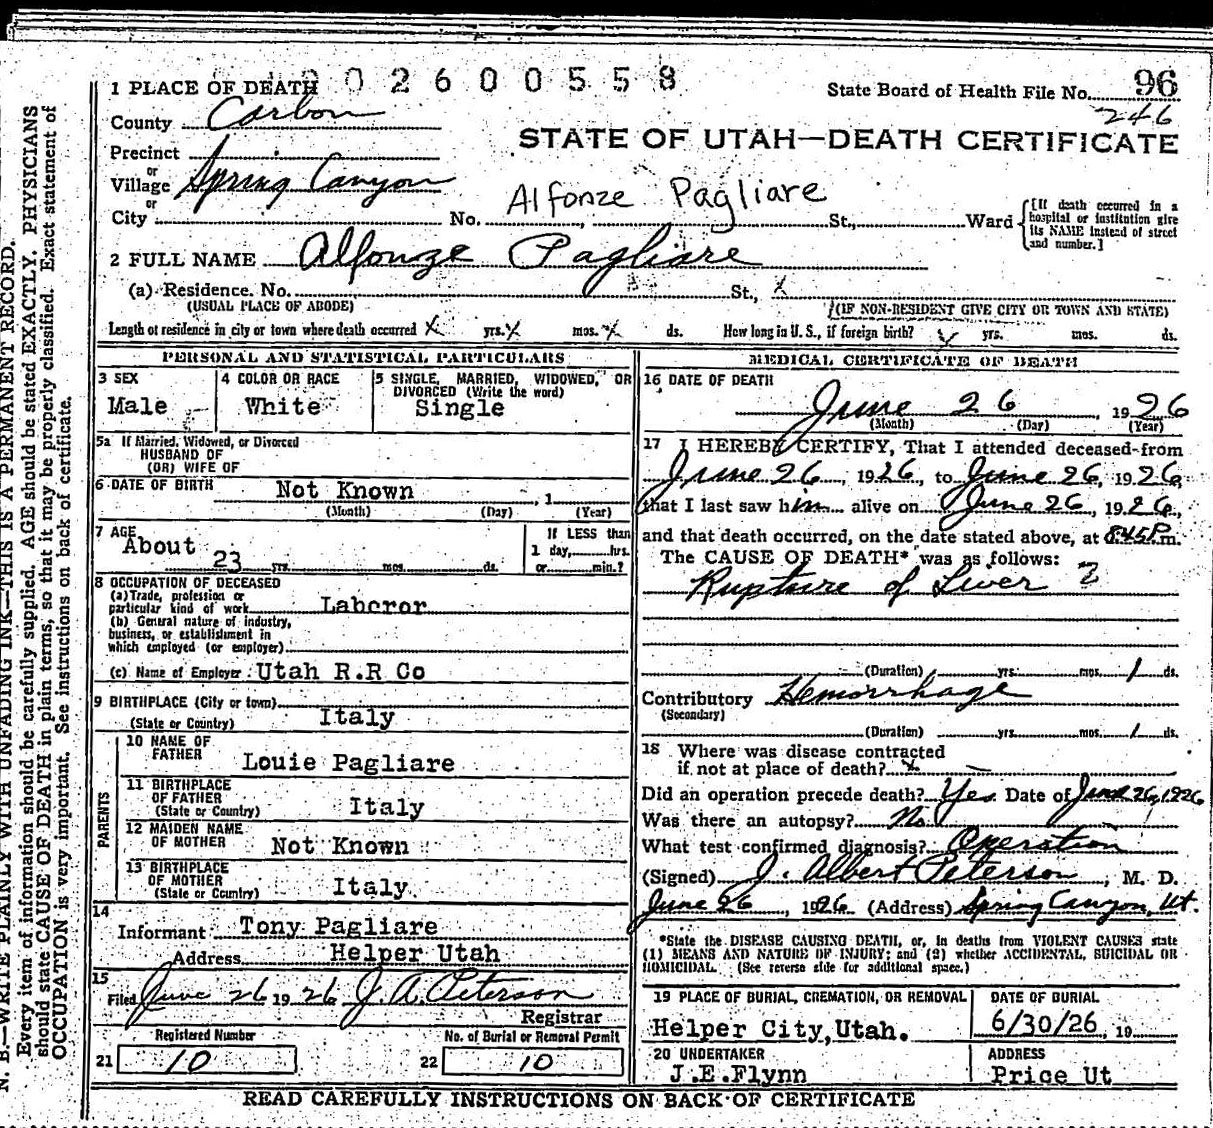 N. B.—WRITE PLAINLY WITH UNFADING INK—THIS IS A PERMANENT RECORD.
Every item of information should be carefully supplied. AGE should be stated EXACTLY. PHYSICIANS
should state CAUSE OF DEATH in plain terms, so that it may be properly classified. Exact statement of
OCCUPATION is very important. See instructions on back of certificate.
1 PLACE OF DEATH 02600558
State Board of Health File No. 96
246
County Carbon
STATE OF UTAH—DEATH CERTIFICATE
Precinct
or
Village Spring Canyon
or
Alfonze Pagliare
City No. St., Ward
[If death occurred in a
hospital or institution give
its NAME instead of street
and number.]
2 FULL NAME Alfonze Pagliare
(a) Residence. No. St., X
(USUAL PLACE OF ABODE) (IF NON-RESIDENT GIVE CITY OR TOWN AND STATE)
Length of residence in city or town where death occurred X yrs. X mos. X ds. How long in U. S., if foreign birth? X yrs. mos. ds.
PERSONAL AND STATISTICAL PARTICULARS
3 SEX 4 COLOR OR RACE 5 SINGLE, MARRIED, WIDOWED, OR
DIVORCED (Write the word)
Male White Single
5a If Married, Widowed, or Divorced
HUSBAND OF
(OR) WIFE OF
6 DATE OF BIRTH Not Known , 1
(Month) (Day) (Year)
7 AGE If LESS than
About 23 yrs. mos. ds. 1 day, hrs.
or min.?
8 OCCUPATION OF DECEASED
(a) Trade, profession or
particular kind of work Labcror
(b) General nature of industry,
business, or establishment in
which employed (or employer)
(c) Name of Employer Utah R.R Co
9 BIRTHPLACE (City or town)
(State or Country) Italy
PARENTS
10 NAME OF
FATHER Louie Pagliare
11 BIRTHPLACE
OF FATHER
(State or Country) Italy
12 MAIDEN NAME
OF MOTHER Not Known
13 BIRTHPLACE
OF MOTHER
(State or Country) Italy.
14
Informant Tony Pagliare
Address Helper Utah
15
Filed June 26 1926 J. A. Peterson
Registrar
Registered Number No. of Burial or Removal Permit
21 10 22 10
MEDICAL CERTIFICATE OF DEATH
16 DATE OF DEATH
June 26, 1926
(Month) (Day) (Year)
17 I HEREBY CERTIFY, That I attended deceased from
June 26, 1926, to June 26, 1926,
that I last saw him alive on June 26, 1926,
and that death occurred, on the date stated above, at 8:45 P.m.
The CAUSE OF DEATH* was as follows:
Rupture of Liver ?
(Duration) yrs. mos. 1 ds.
Contributory Hemorrhage
(Secondary)
(Duration) yrs. mos. 1 ds.
18 Where was disease contracted
if not at place of death? X
Did an operation precede death? Yes Date of June 26, 1926
Was there an autopsy? No
What test confirmed diagnosis? Operation
(Signed) J. Albert Peterson, M. D.
June 26, 1926 (Address) Spring Canyon, Ut.
*State the DISEASE CAUSING DEATH, or, in deaths from VIOLENT CAUSES state
(1) MEANS AND NATURE OF INJURY; and (2) whether ACCIDENTAL, SUICIDAL OR
HOMICIDAL. (See reverse side for additional space.)
19 PLACE OF BURIAL, CREMATION, OR REMOVAL DATE OF BURIAL
Helper City, Utah. 6/30/26, 19
20 UNDERTAKER ADDRESS
J.E.Flynn Price Ut
READ CAREFULLY INSTRUCTIONS ON BACK OF CERTIFICATE